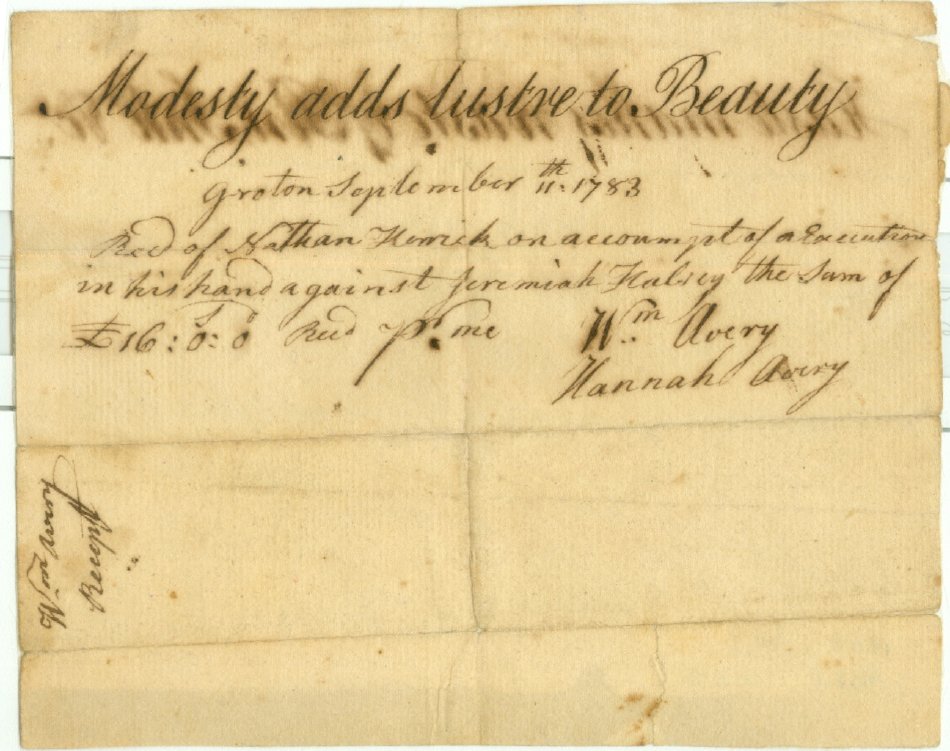 Modesty adds lustre to Beauty
Groton September 11th. 1783
Recd of Nathan Herrick on accoumpt of a Execution
in his hand against Jeremiah Halsey the Sum of
£16:0:0 Recd pr. me Wm Avery
Hannah Avery
Wm Avery
Receipt